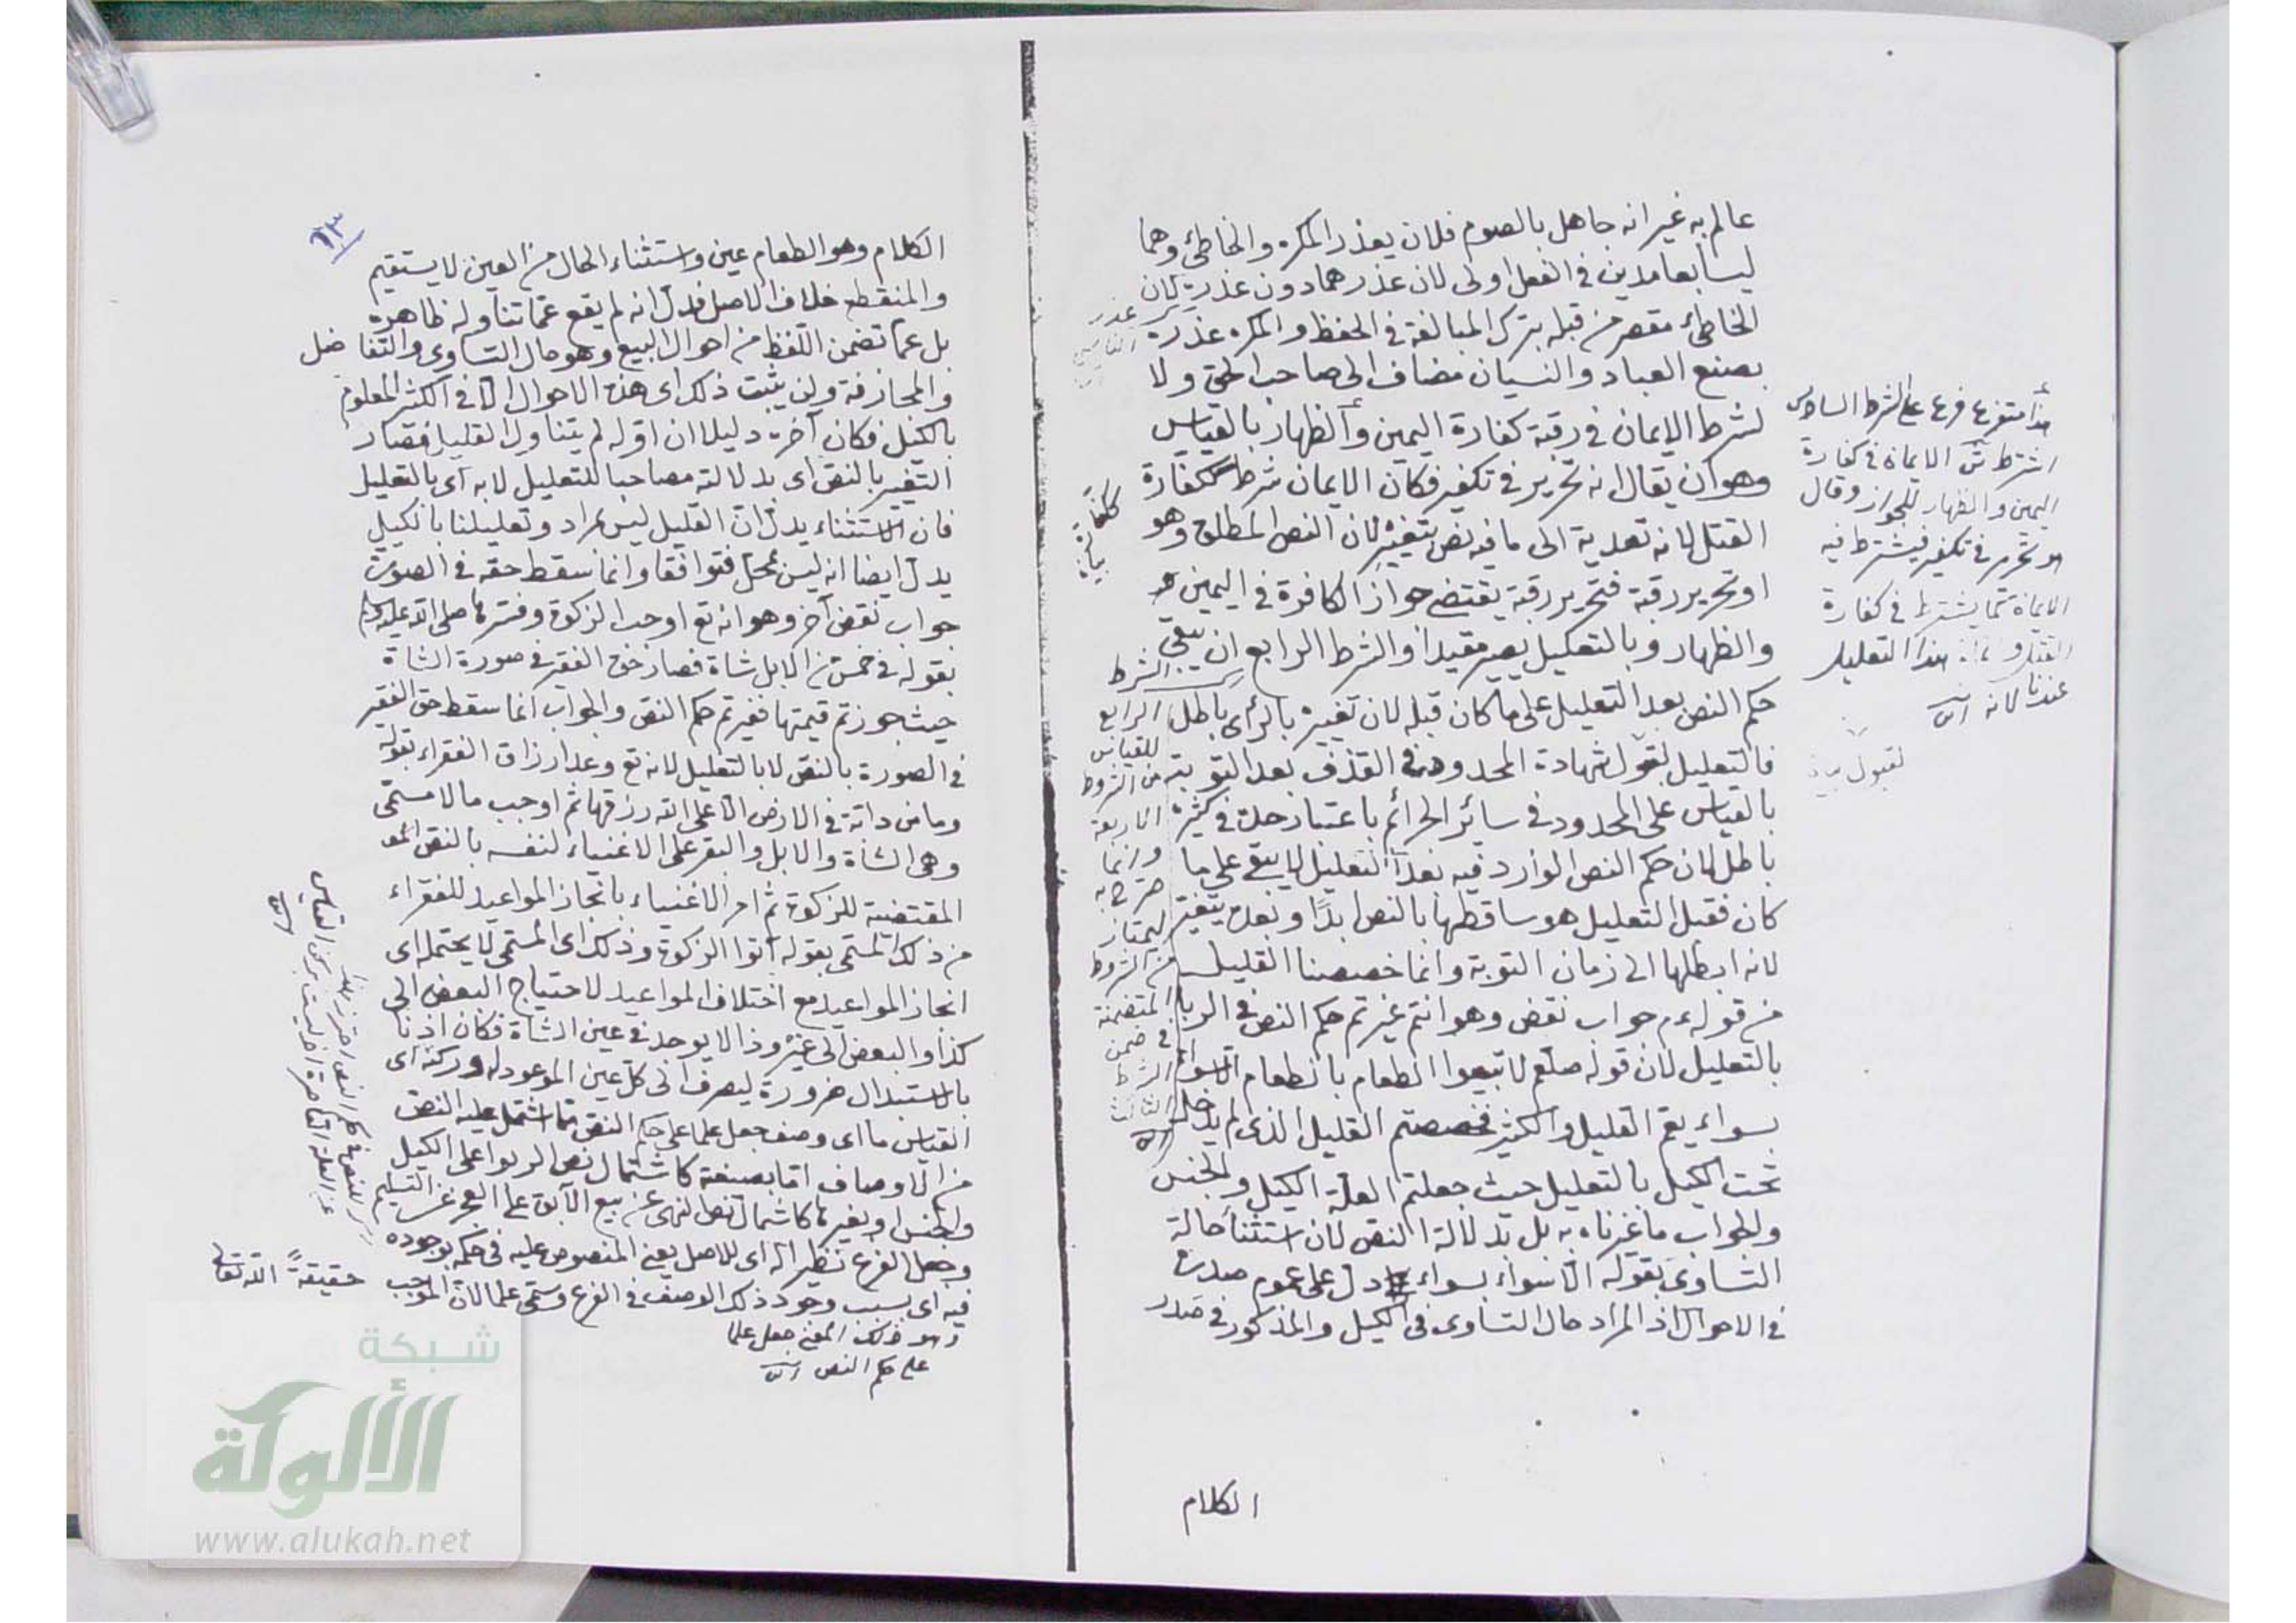 عالم به غير انه جاهل بالصوم فلان يعذر المكره والخاطئ وهما
ليسا بعامدين في الفعل اولى لان عذرهما دون عذره لان
الخاطئ مقصر من قبله بترك المبالغة في الحفظ والمكره عذره
بصنع العباد والنسيان مضاف الى صاحب الحق ولا
لشرط الايمان في رقبة كفارة اليمين والظهار بالقياس
وهو ان يقال انه تحرير في تكفير فكان الايمان شرط ككفارة
القتل لانه تعدية الى ما فيه نص بتغيير لان النص المطلق وهو
او تحرير رقبة فتحرير رقبة يقتضي جواز الكافرة في اليمين
والظهار وبالتعليل يصير مقيدا والشرط الرابع ان يبقى
حكم النص بعد التعليل على ما كان قبله لان تغييره بالرأي باطل
فالتعليل لقبول شهادة المحدود في القذف بعد التوبة
بالقياس على المحدود في سائر الجرائم باعتبار حده في كثيره
باطل لان حكم النص الوارد فيه بعد التعليل لا يبقى على ما
كان فقبل التعليل هو ساقطها بالنص ابدًا وبعده يتغير
لانه ابطلها الى زمان التوبة وانما خصصنا القليل
من قوله ءم جواب نقض وهو انتم غيرتم حكم النص في الربا
بالتعليل لان قوله صلعم لا تبيعوا الطعام بالطعام الا سواء
بسواء يعم القليل والكثير فخصصتم القليل الذي لم يدخل
تحت الكيل بالتعليل حيث جعلتم العلة الكيل والجنس
والجواب ما غيرناه به بل بدلالة النص لان استثناء حالة
التساوي بقوله الا سواء بسواء دل على عموم صدره
في الاحوال اذ المراد حال التساوي في الكيل والمذكور في صدر
هذا متفرع فرع على الشرط السادس
اشترط الايمان في كفارة
اليمين والظهار للجواز وقال
هو تحرير في تكفير فيشترط فيه
الايمان كما يشترط في كفارة
القتل هذا التعليل
عندنا لانه
لقبول
الشرط
الرابع
للقياس
من الشروط
الاربعة
وانما
صرح به
ليمتاز
من الشروط
المتضمنة
في ضمن
الشرط
الثالث
الكلام
٦٣
الكلام وهو الطعام عين واستثناء الحال من العين لا يستقيم
والمنقطع خلاف الاصل فدل انه لم يقع عما تناوله ظاهره
بل عما تضمن اللفظ من احوال البيع وهو حال التساوي والتفاضل
والمجازفة ولن يثبت ذلك اي هذه الاحوال الا في الكثير المعلوم
بالكيل فكان آخره دليلا ان اوله لم يتناول القليل فصار
التغيير بالنص اي بدلالته مصاحبا للتعليل لا به اي بالتعليل
فان الاستثناء يدل ان القليل ليس بمراد وتعليلنا بالكيل
يدل ايضا انه ليس بمحل فتوافقا وانما سقط حقه في الصورة
جواب نقض آخر وهو انه تع اوجب الزكوة وفسرها صلى الله عليه وسلم
بقوله في خمس من الابل شاة فصار حق الفقير في صورة الشاة
حيث جوزتم قيمتها فغيرتم حكم النص والجواب انما سقط حق الفقير
في الصورة بالنص لا بالتعليل لانه تع وعد ارزاق الفقراء بقوله
وما من دابة في الارض الا على الله رزقها ثم اوجب مالا مسمى
وهي الشاة والابل والبقر على الاغنياء لنفسه بالنص
المقتضية للزكوة ثم امر الاغنياء بانجاز المواعيد للفقراء
من ذلك المسمى بقوله آتوا الزكوة وذلك اي المسمى لا يحتمله اي
انجاز المواعيد مع اختلاف المواعيد لاحتياج البعض الى
كذا والبعض الى غيره وذا لا يوجد في عين الشاة فكان اذنا
بالاستبدال ضرورة ليصرف الى كل عين الموعود له وركنه اي
القياس ما اي وصف جعل علما على حكم النص مما اشتمل عليه النص
من الاوصاف اما بصيغته كاشتمال نص الربوا على الكيل
والجنس او بغيرها كاشتمال نص النهي عن بيع الآبق على العجز عن التسليم
وجعل الفرع نظيرا له اي للاصل يعني المنصوص عليه في حكمه بوجوده
فيه اي بسبب وجود ذلك الوصف في الفرع وسمي علما لان الموجب حقيقةً الله تعالى
وهو ذلك المعنى جعل علما
على حكم النص
شبكة
الألوكة
www.alukah.net